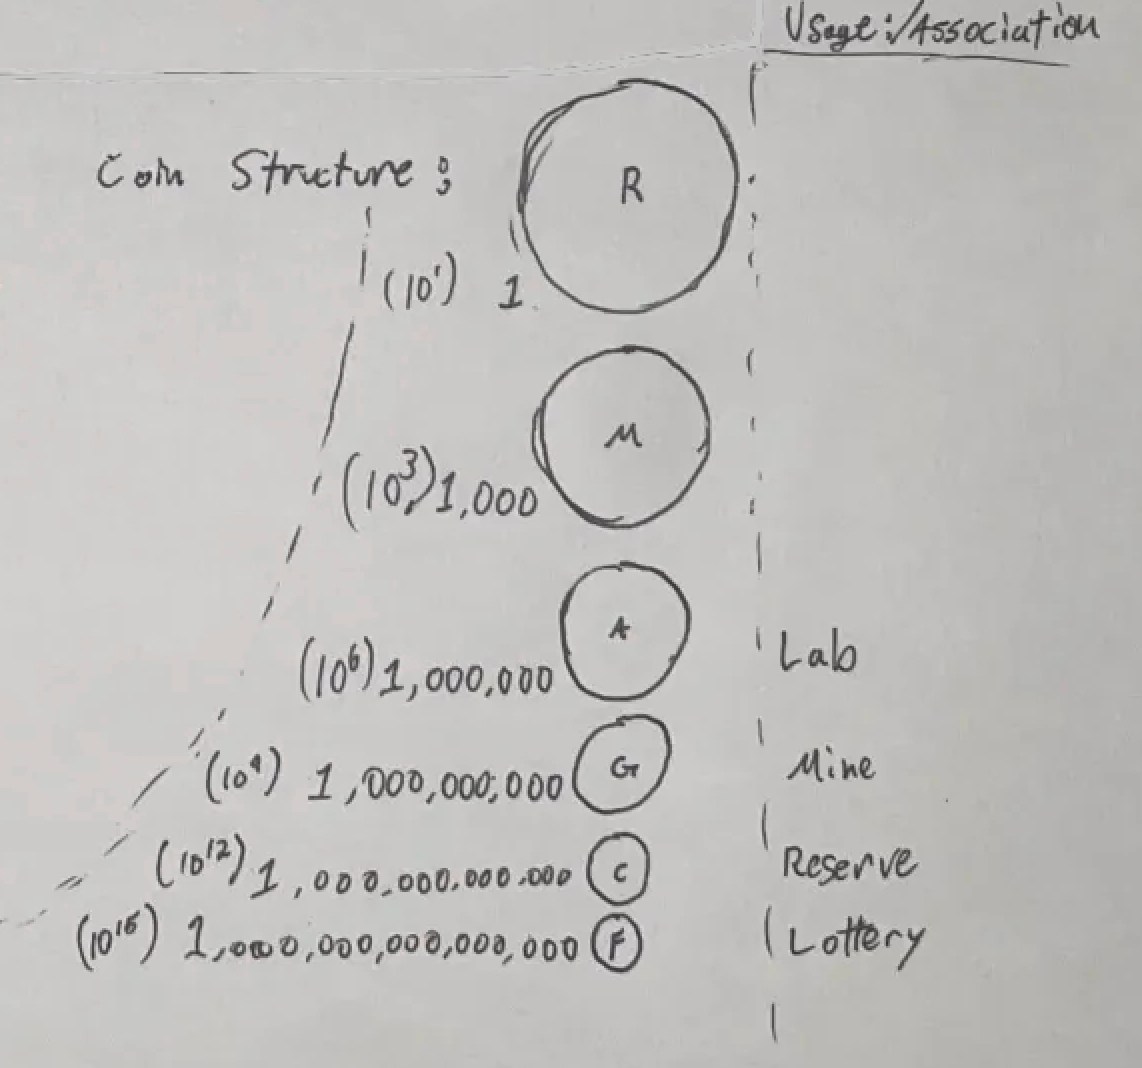 Usage:/Association
Coin Structure:
R
(10¹) 1
M
(10³) 1,000
A
(10⁶) 1,000,000 Lab
(10⁹) 1,000,000,000 G Mine
(10¹²) 1,000,000,000,000 C Reserve
(10¹⁵) 1,000,000,000,000,000 F Lottery